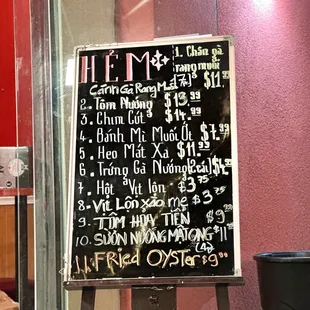 HẺM
1. Chân gà
rang muối
Cánh Gà Rang Mắm $11.99
2. Tôm Nướng $13.99
3. Chim Cút $14.99
4. Bánh Mì Muối Ớt $7.99
5. Heo Mát Xa $11.99
6. Trứng Gà Nướng (2 trái)
7. Hột Vịt lộn $3.75
8. Vịt Lộn xào me $3.75
9. TÔM HÙY TIỀN $9
10. SƯỜN NƯỚNG MẬT ONG $11
(4)
11. FRied OYSTER $9